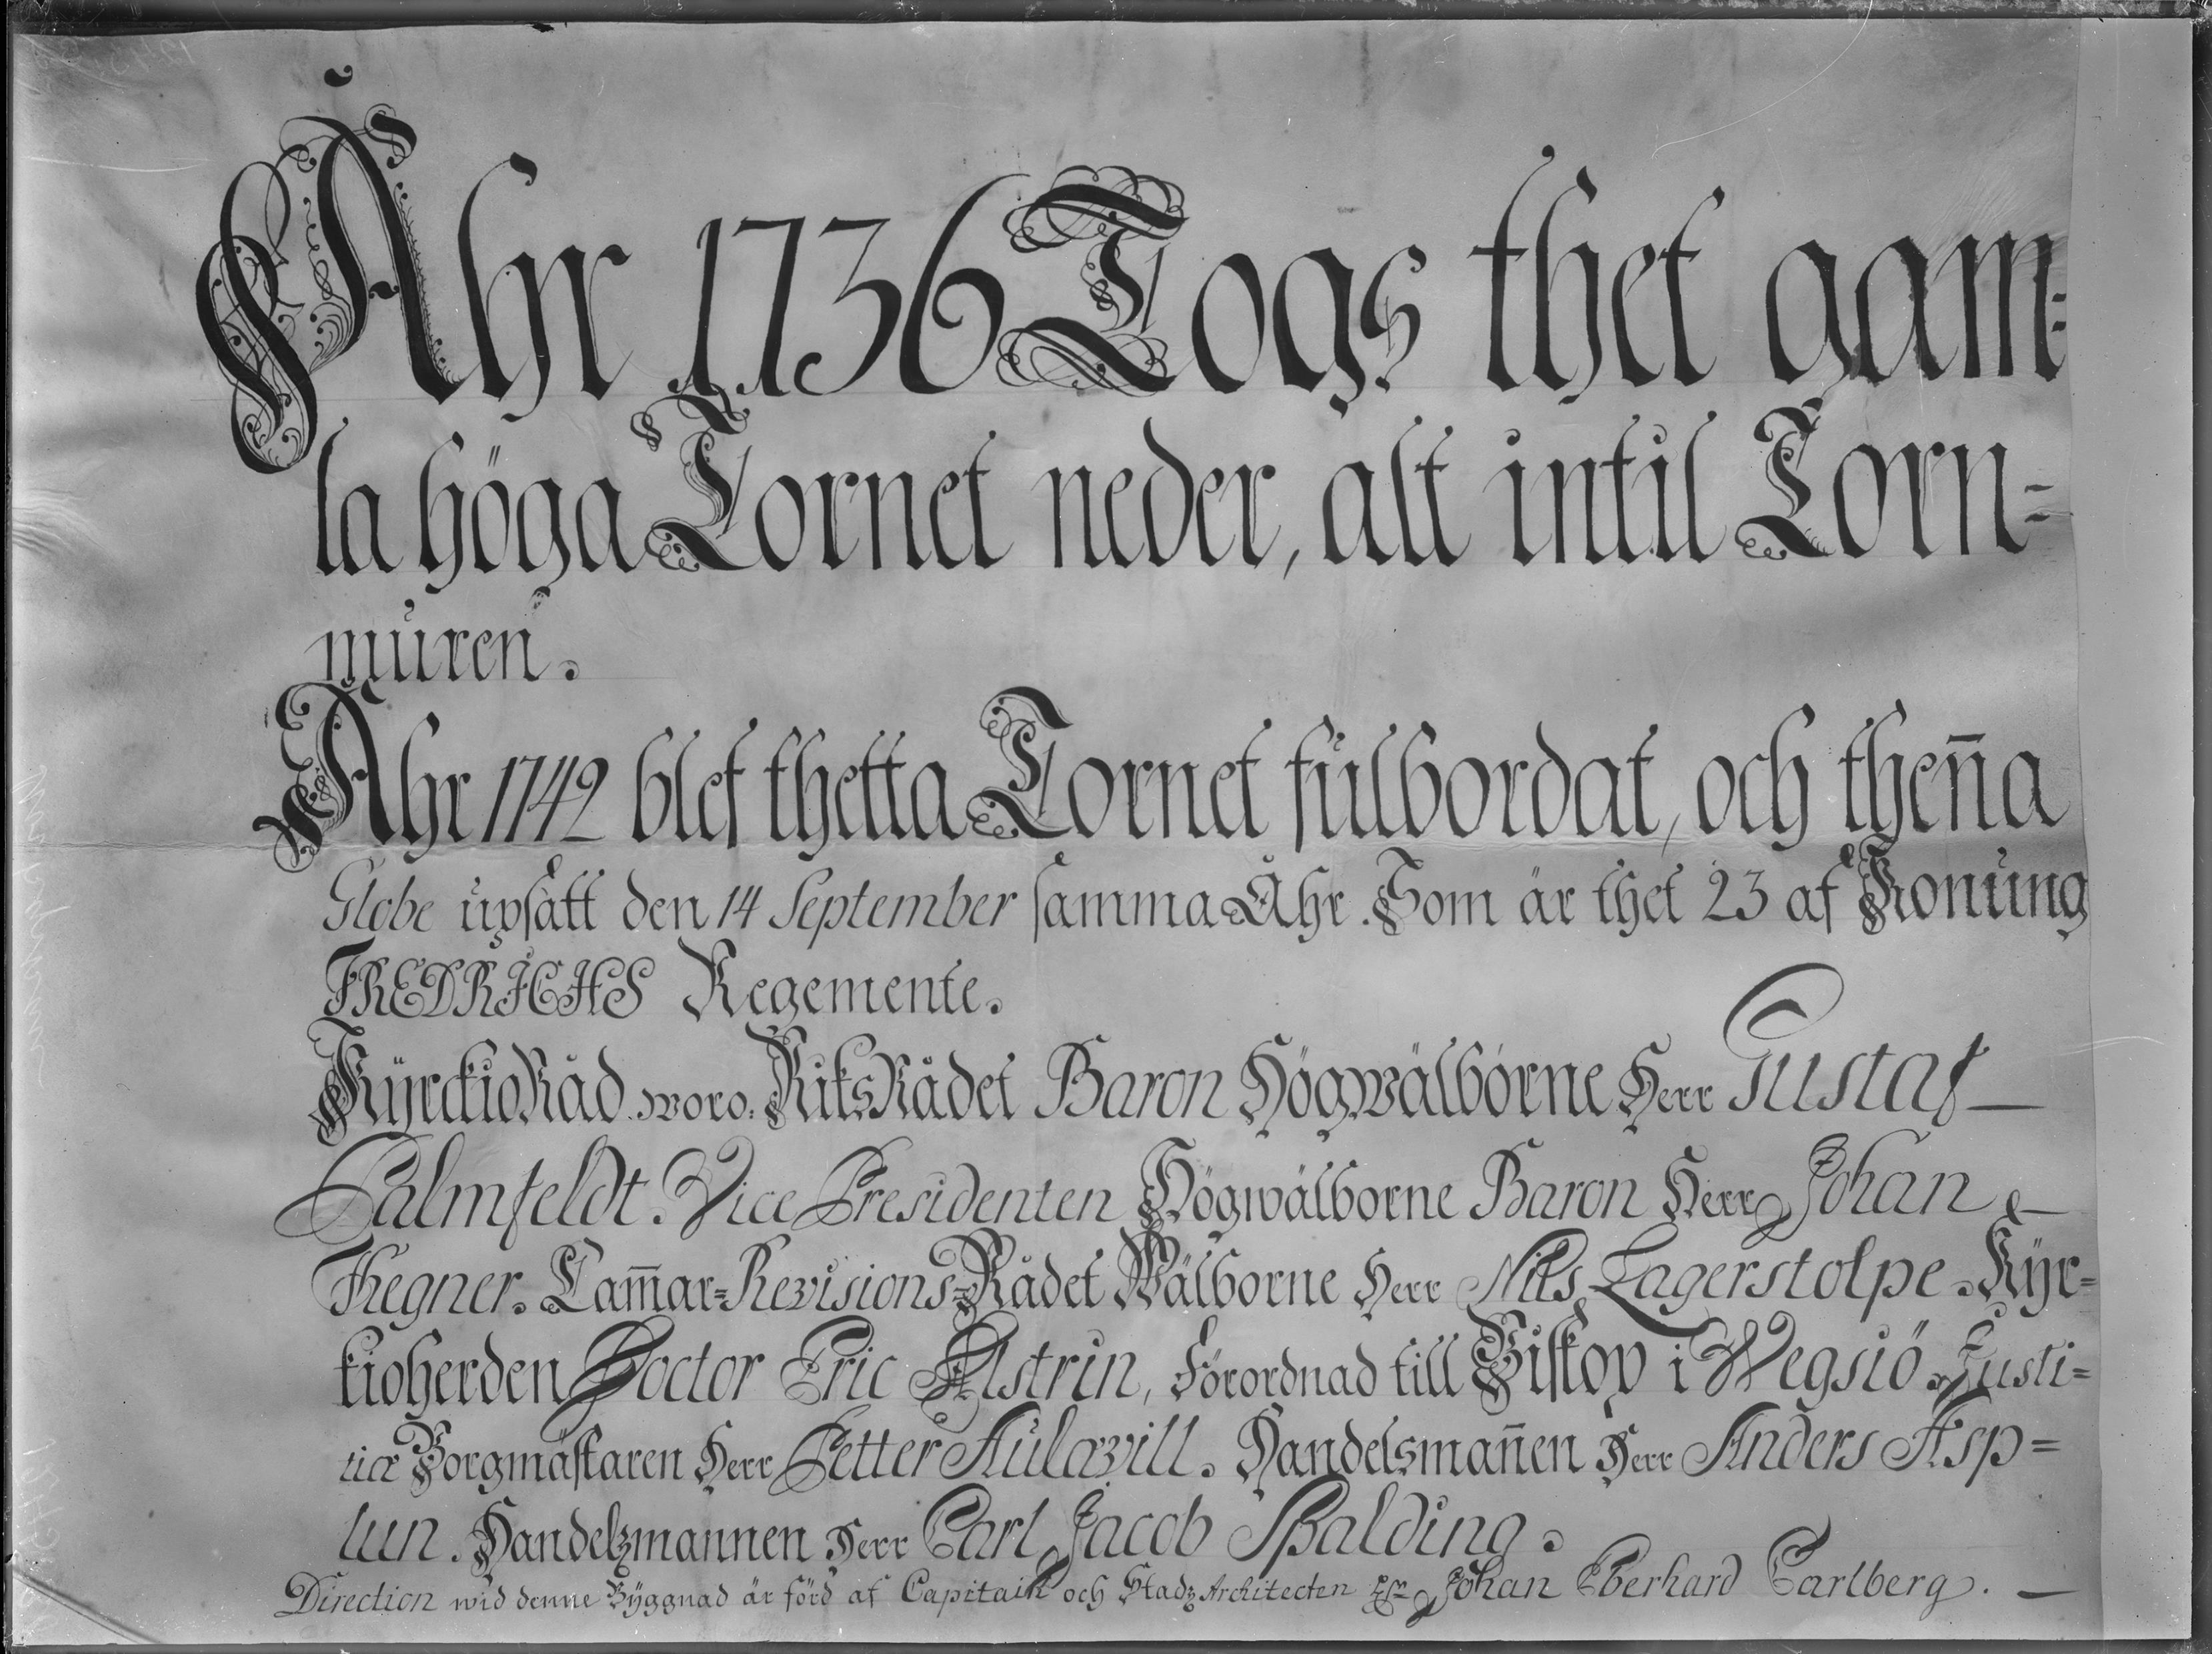 Åhr 1736 Togs thet gam=
la höga Tornet neder, alt intil Torn=
muren.
Åhr 1742 blef thetta Tornet fulbordat, och then̄a
Globe upsatt den 14 September samma Åhr. Som är thet 23 af Konung
FREDRICHS Regemente.
KÿrckioRåd woro. RiksRådet Baron Högwälborne Herr Gustaf
Palmfeldt. Vice Presidenten Högwälborne Baron Herr Johan
Thegner. Cam̄ar=Revisions=Rådet Wälborne Herr Nils Lagerstolpe. Kÿr=
kioherden Doctor Eric Alstrin, Förordnad till Biskop i Wegsiö. Justi=
tiæ Borgmästaren Herr Petter Aulævill. Handelsman̄en Herr Anders Asp=
lun. Handelzmannen Herr Carl Jacob Spalding.
Direction wid denne Bÿggnad är förd af Capitain och Stadz Architecten Hr Johan Eberhard Carlberg.